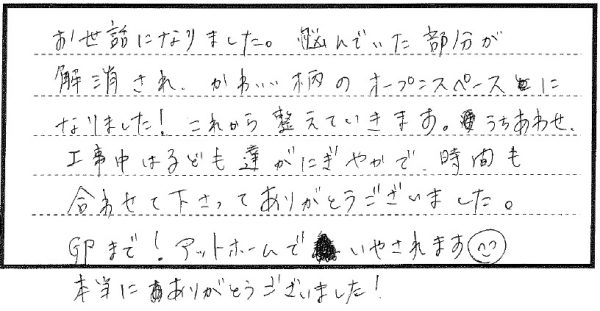 お世話になりました。悩んでいた部分が
解消され、かわいい柄のオープンスペースに
なりました！これから整えていきます。うちあわせ、
工事中は子ども達がにぎやかで、時間も
合わせて下さってありがとうございました。
GPまで！アットホームでいやされます
本当にありがとうございました！